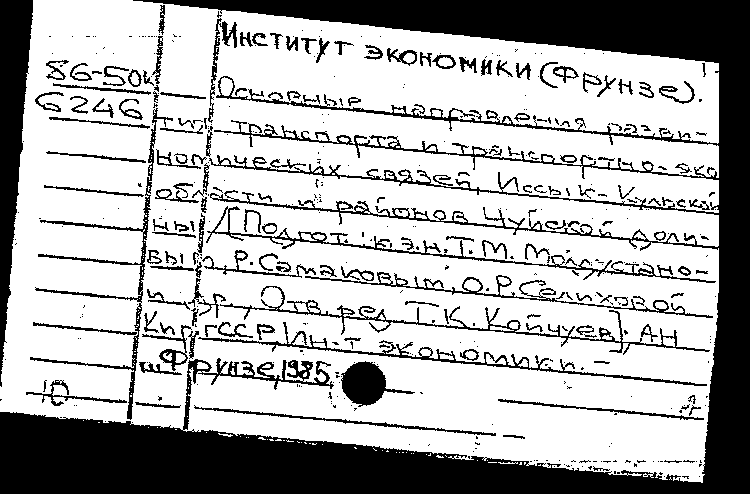 Институт экономики (Фрунзе).
86-50к
6246
Основные направления разви-
тия транспорта и транспортно-эко
номических связей, Иссык-Кульской
области и районов Чуйской доли-
ны / [Подгот.: к.э.н. Т.М. Молдустано-
вым, Р. Самаковым, О.Р. Селиховой
и др., Отв. ред. Т.К. Койчуев]; АН
КиргССР, Ин-т экономики. –
Фрунзе, 1985.
10